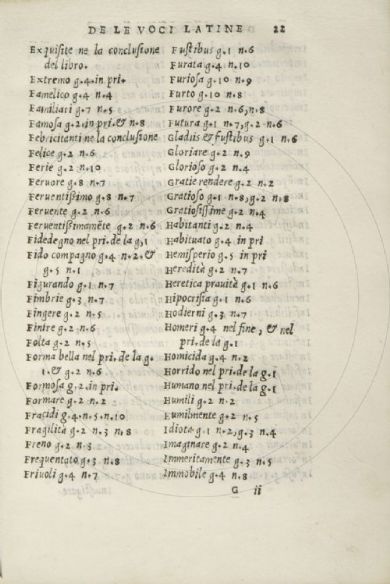 DE LE VOCI LATINE 22
Exquisite ne la conclusione
del libro.
Extremo g.4.in pri.
Famelico g.4 n.4
Familiari g.7 n.5
Famosa g.2.in pri.& n.8
Febricitanti ne la conclusione
Felice g.2 n.6
Ferie g.2 n.10
Feruore g.8 n.7
Feruentissimo g.8 n.7
Feruente g.2 n.6
Feruentissimamẽte g.2 n.6
Fidedegno nel pri.de la g,1
Fido compagno g.4 n.2,&
g.5 n.1
Figurando g.1 n.7
Fimbrie g.3 n.7
Fingere g.2 n.5
Finire g.2 n.6
Folta g.2 n.5
Forma bella nel pri.de la g.
1.& g.2 n.6
Formosa g.2.in pri.
Formare g.2 n.2
Fracidi g.4.n.5,n.10
Fragilità g.2 n.3 n,8
Freno g.2 n.3
Frequentato g.3 n.8
Friuoli g.4 n.7
Fustibus g.1 n.6
Furata g.4 n.10
Furiosa g.10 n.9
Furto g.10 n.8
Furore g.2 n.6,n.8
Futura g.1 n.7,g.2 n.6
Gladiis & fustibus g.1 n.6
Gloriare g.2 n.9
Glorioso g.2 n.4
Gratie rendere g.2 n.2
Gratioso g.1 n.8,g.2 n.8
Gratiosissime g.2 n.4
Habitanti g.2 n.4
Habituato g.4 in pri
Hemisperio g.5 in pri
Heredità g.2 n.7
Heretica prauità g.1 n.6
Hipocrisia g.1 n.6
Hodierni g.3 n.7
Homeri g.4 nel fine, & nel
pri.de la g.1
Homicida g.4 n.2
Horrido nel pri.de la g.1
Humano nel pri.de la g.1
Humili g.2 n.2
Humilmente g.2 n.5
Idiota g.1 n.2,g.3 n.4
Imaginare g.2 n.4
Immeritamente g.3 n.5
Immobile g.4 n.8
G ii